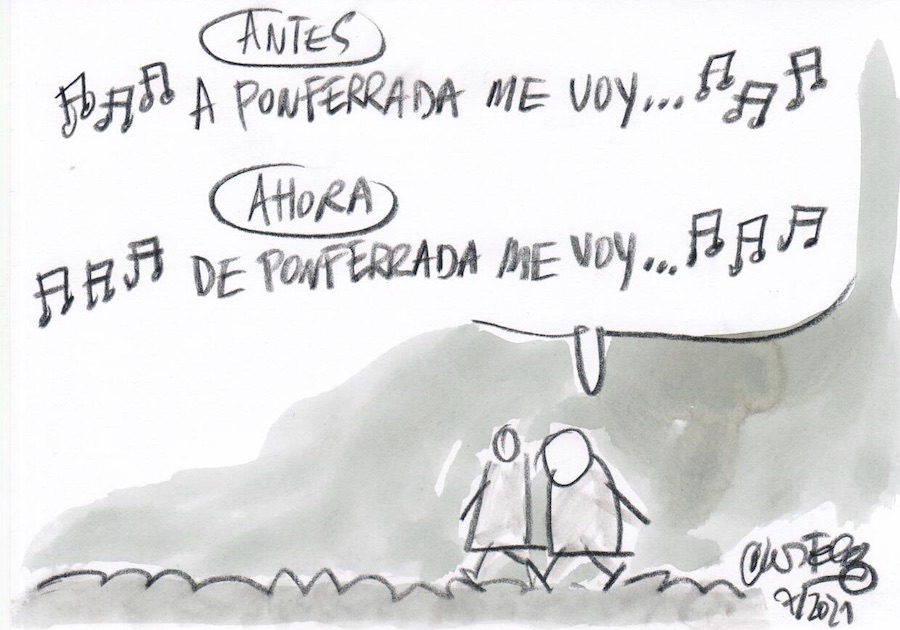 ANTES
A PONFERRADA ME VOY...
AHORA
DE PONFERRADA ME VOY...
7/2021